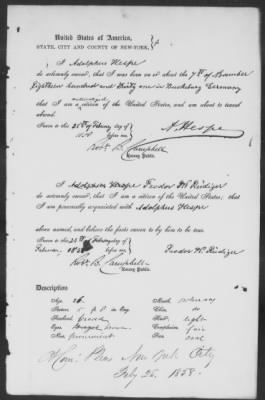 United States of America,
STATE, CITY AND COUNTY OF NEW-YORK,
I Adolphus Hespe
do solemnly swear, that I was born on or about the 7th of November
Eighteen hundred and thirty one in Buckeburg Germany
that I am a naturalized citizen of the United States, and am about to travel
abroad.
Sworn to this 25th of February day of
1858 before me
A. Hespe
Robt B. Campbell
Notary Public.
I Adolphus Hespe Teodor W. Rüdiger
do solemnly swear, that I am a citizen of the United States, that
I am personally acquainted with Adolphus Hespe
above named, and believe the facts sworn to by him to be true.
Sworn to this 25th February day of
February, 1858 before me
Teodor W. Rüdiger
Robt B. Campbell
Notary Public.
Description
Age 26. Mouth
Stature 5 f 8 in Eng Chin
Forehead Hair light
Eyes Complexion fair
Nose prominent Face oval
New York City
July 26, 1858.